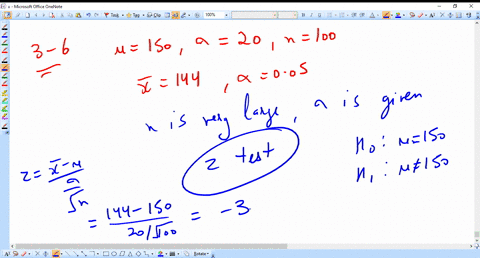 - Microsoft Office OneNote
200%
3-6 μ=150, a=20, n=100
x̄=144, a=0.05
n is very large, a is given
z test
H₀: μ=150
H₁: μ≠150
z = x̄-μ / a/√n
= 144-150 / 20/√100 = -3